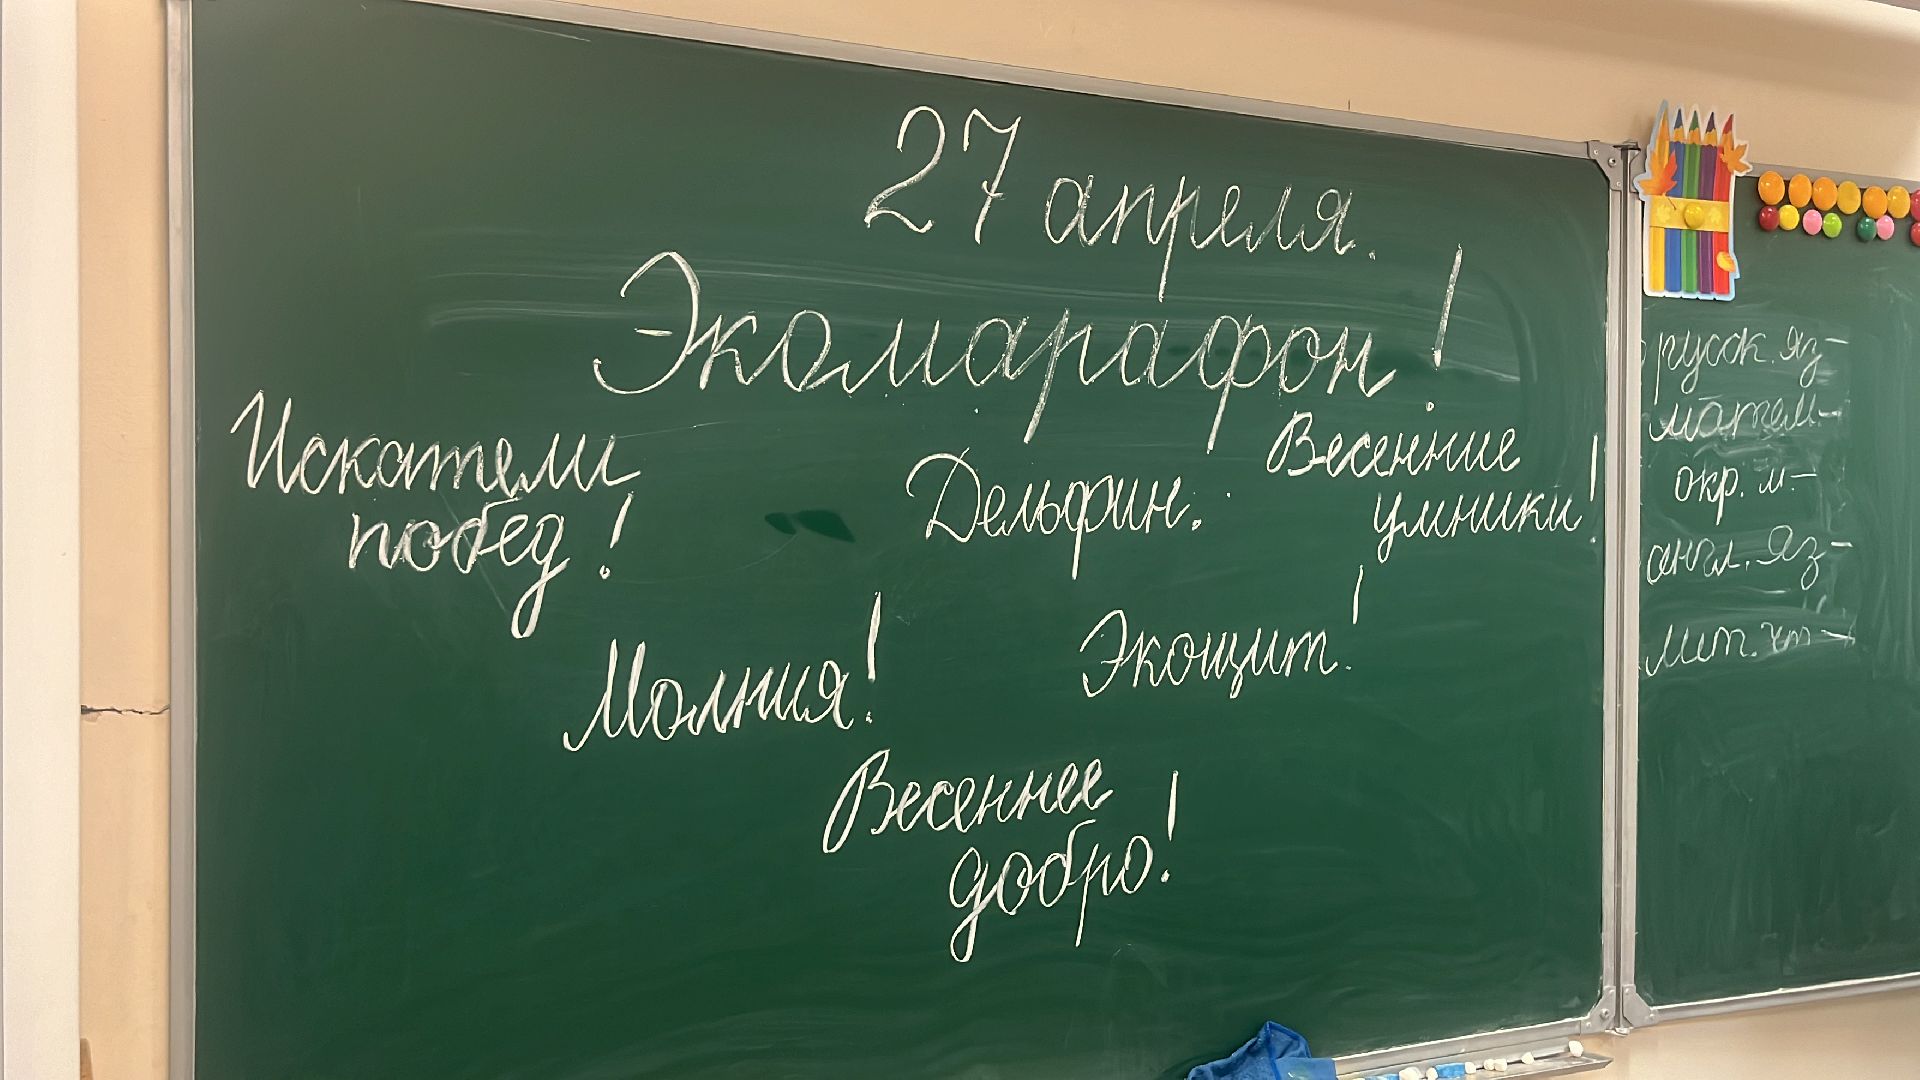 27 апреля.
Экомарафон!
Искатели
побед!
Дельфин.
Весенние
умники!
Молния!
Экощит!
Весеннее
добро!
русск. яз-
матем-
окр. м.-
англ. яз-
лит. чт-